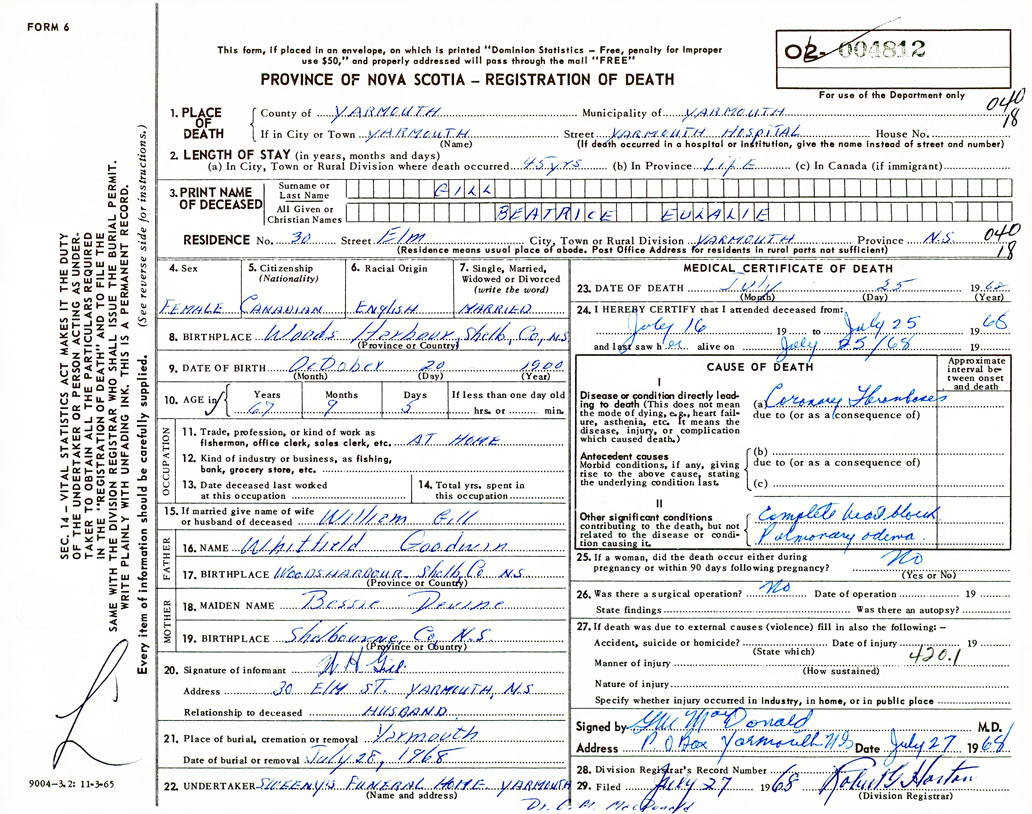 FORM 6
This form, if placed in an envelope, on which is printed "Dominion Statistics – Free, penalty for improper
use $50," and properly addressed will pass through the mail "FREE"
PROVINCE OF NOVA SCOTIA – REGISTRATION OF DEATH
004812
For use of the Department only
040
18
1. PLACE OF DEATH County of YARMOUTH Municipality of YARMOUTH
If in City or Town YARMOUTH Street YARMOUTH HOSPITAL House No.
(Name) (If death occurred in a hospital or institution, give the name instead of street and number)
2. LENGTH OF STAY (in years, months and days)
(a) In City, Town or Rural Division where death occurred 45 yrs (b) In Province LIFE (c) In Canada (if immigrant)
3. PRINT NAME OF DECEASED Surname or Last Name GILL
All Given or Christian Names BEATRICE EULALIE
RESIDENCE No. 30 Street Elm City, Town or Rural Division YARMOUTH Province N.S. 040
(Residence means usual place of abode. Post Office Address for residents in rural parts not sufficient) 18
4. Sex 5. Citizenship (Nationality) 6. Racial Origin 7. Single, Married, Widowed or Divorced (write the word)
FEMALE CANADIAN ENGLISH MARRIED
8. BIRTHPLACE Woods Harbour, Shelb, Co, N.S
(Province or Country)
9. DATE OF BIRTH October 20 1900
(Month) (Day) (Year)
10. AGE in Years Months Days If less than one day old
67 9 5 hrs. or min.
OCCUPATION
11. Trade, profession, or kind of work as
fisherman, office clerk, sales clerk, etc. AT HOME
12. Kind of industry or business, as fishing,
bank, grocery store, etc.
13. Date deceased last worked at this occupation 14. Total yrs. spent in this occupation
15. If married give name of wife
or husband of deceased William Gill
FATHER
16. NAME Whitfield Goodwin
17. BIRTHPLACE WOODSHARBOUR, Shelb, Co N.S
(Province or Country)
MOTHER
18. MAIDEN NAME Bessie Devine
19. BIRTHPLACE Shelbourne, Co, N.S
(Province or Country)
20. Signature of informant W H Gill
Address 30 ELM ST. YARMOUTH, N.S
Relationship to deceased HUSBAND
21. Place of burial, cremation or removal Yarmouth
Date of burial or removal July 28, 1968
22. UNDERTAKER SWEENY'S FUNERAL HOME YARMOUTH
(Name and address)
MEDICAL CERTIFICATE OF DEATH
23. DATE OF DEATH July 25 1968
(Month) (Day) (Year)
24. I HEREBY CERTIFY that I attended deceased from:
July 16 19 to July 25 1968
and last saw her alive on July 25/68 19
CAUSE OF DEATH
Approximate interval between onset and death
I
Disease or condition directly leading
to death (This does not mean
the mode of dying, e.g., heart failure,
asthenia, etc. It means the
disease, injury, or complication
which caused death.)
(a) Coronary Thromboses
due to (or as a consequence of)
Antecedent causes
Morbid conditions, if any, giving
rise to the above cause, stating
the underlying condition last.
(b)
due to (or as a consequence of)
(c)
II
Other significant conditions
contributing to the death, but not
related to the disease or condition
causing it.
Complete heart block
Pulmonary odema
25. If a woman, did the death occur either during
pregnancy or within 90 days following pregnancy? No
(Yes or No)
26. Was there a surgical operation? No Date of operation 19
State findings Was there an autopsy?
27. If death was due to external causes (violence) fill in also the following: –
Accident, suicide or homicide? Date of injury 19
(State which) 420.1
Manner of injury
(How sustained)
Nature of injury
Specify whether injury occurred in Industry, in home, or in public place
Signed by MacDonald M.D.
Address P O Box Yarmouth NS Date July 27 1968
28. Division Registrar's Record Number
29. Filed July 27 1968 Robert G Horton
(Division Registrar)
Dr. C. M. MacDonald
SEC. 14 – VITAL STATISTICS ACT MAKES IT THE DUTY
OF THE UNDERTAKER OR PERSON ACTING AS UNDER-
TAKER TO OBTAIN ALL THE PARTICULARS REQUIRED
IN THE "REGISTRATION OF DEATH" AND TO FILE THE
SAME WITH THE DIVISION REGISTRAR WHO SHALL ISSUE THE BURIAL PERMIT.
WRITE PLAINLY WITH UNFADING INK. THIS IS A PERMANENT RECORD.
Every item of information should be carefully supplied. (See reverse side for instructions.)
9004-3.2: 11-3-65